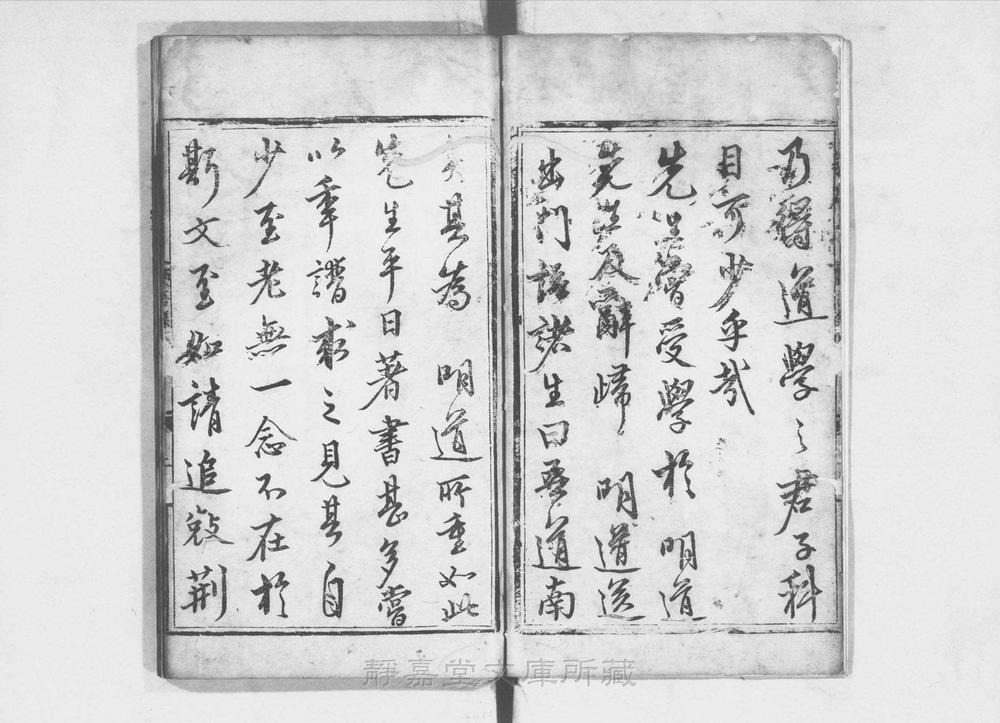 乃得道學之君子科
目可少乎哉
先生嘗受學於　明道
先生及辭歸　明道送
出門語諸生曰吾道南
矣其爲　明道所重如此
先生平日著書甚多嘗
以年譜求之見其自
少至老無一念不在於
斯文至如請追奪荆
靜嘉堂文庫所藏